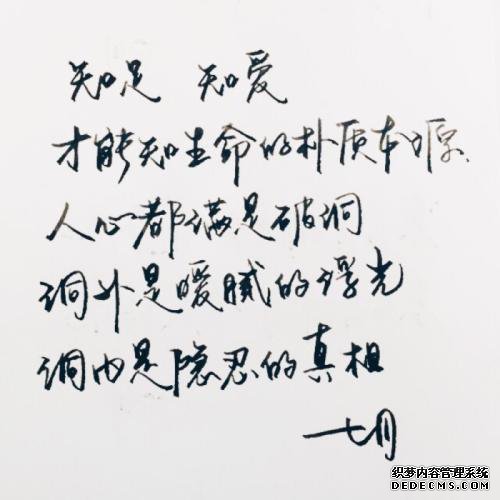 知足 知爱
才能知生命的朴质本源
人心都满是破洞
洞外是暧腻的浮光
洞内是隐忍的真相
七月
织梦内容管理系统
DEDECMS.COM